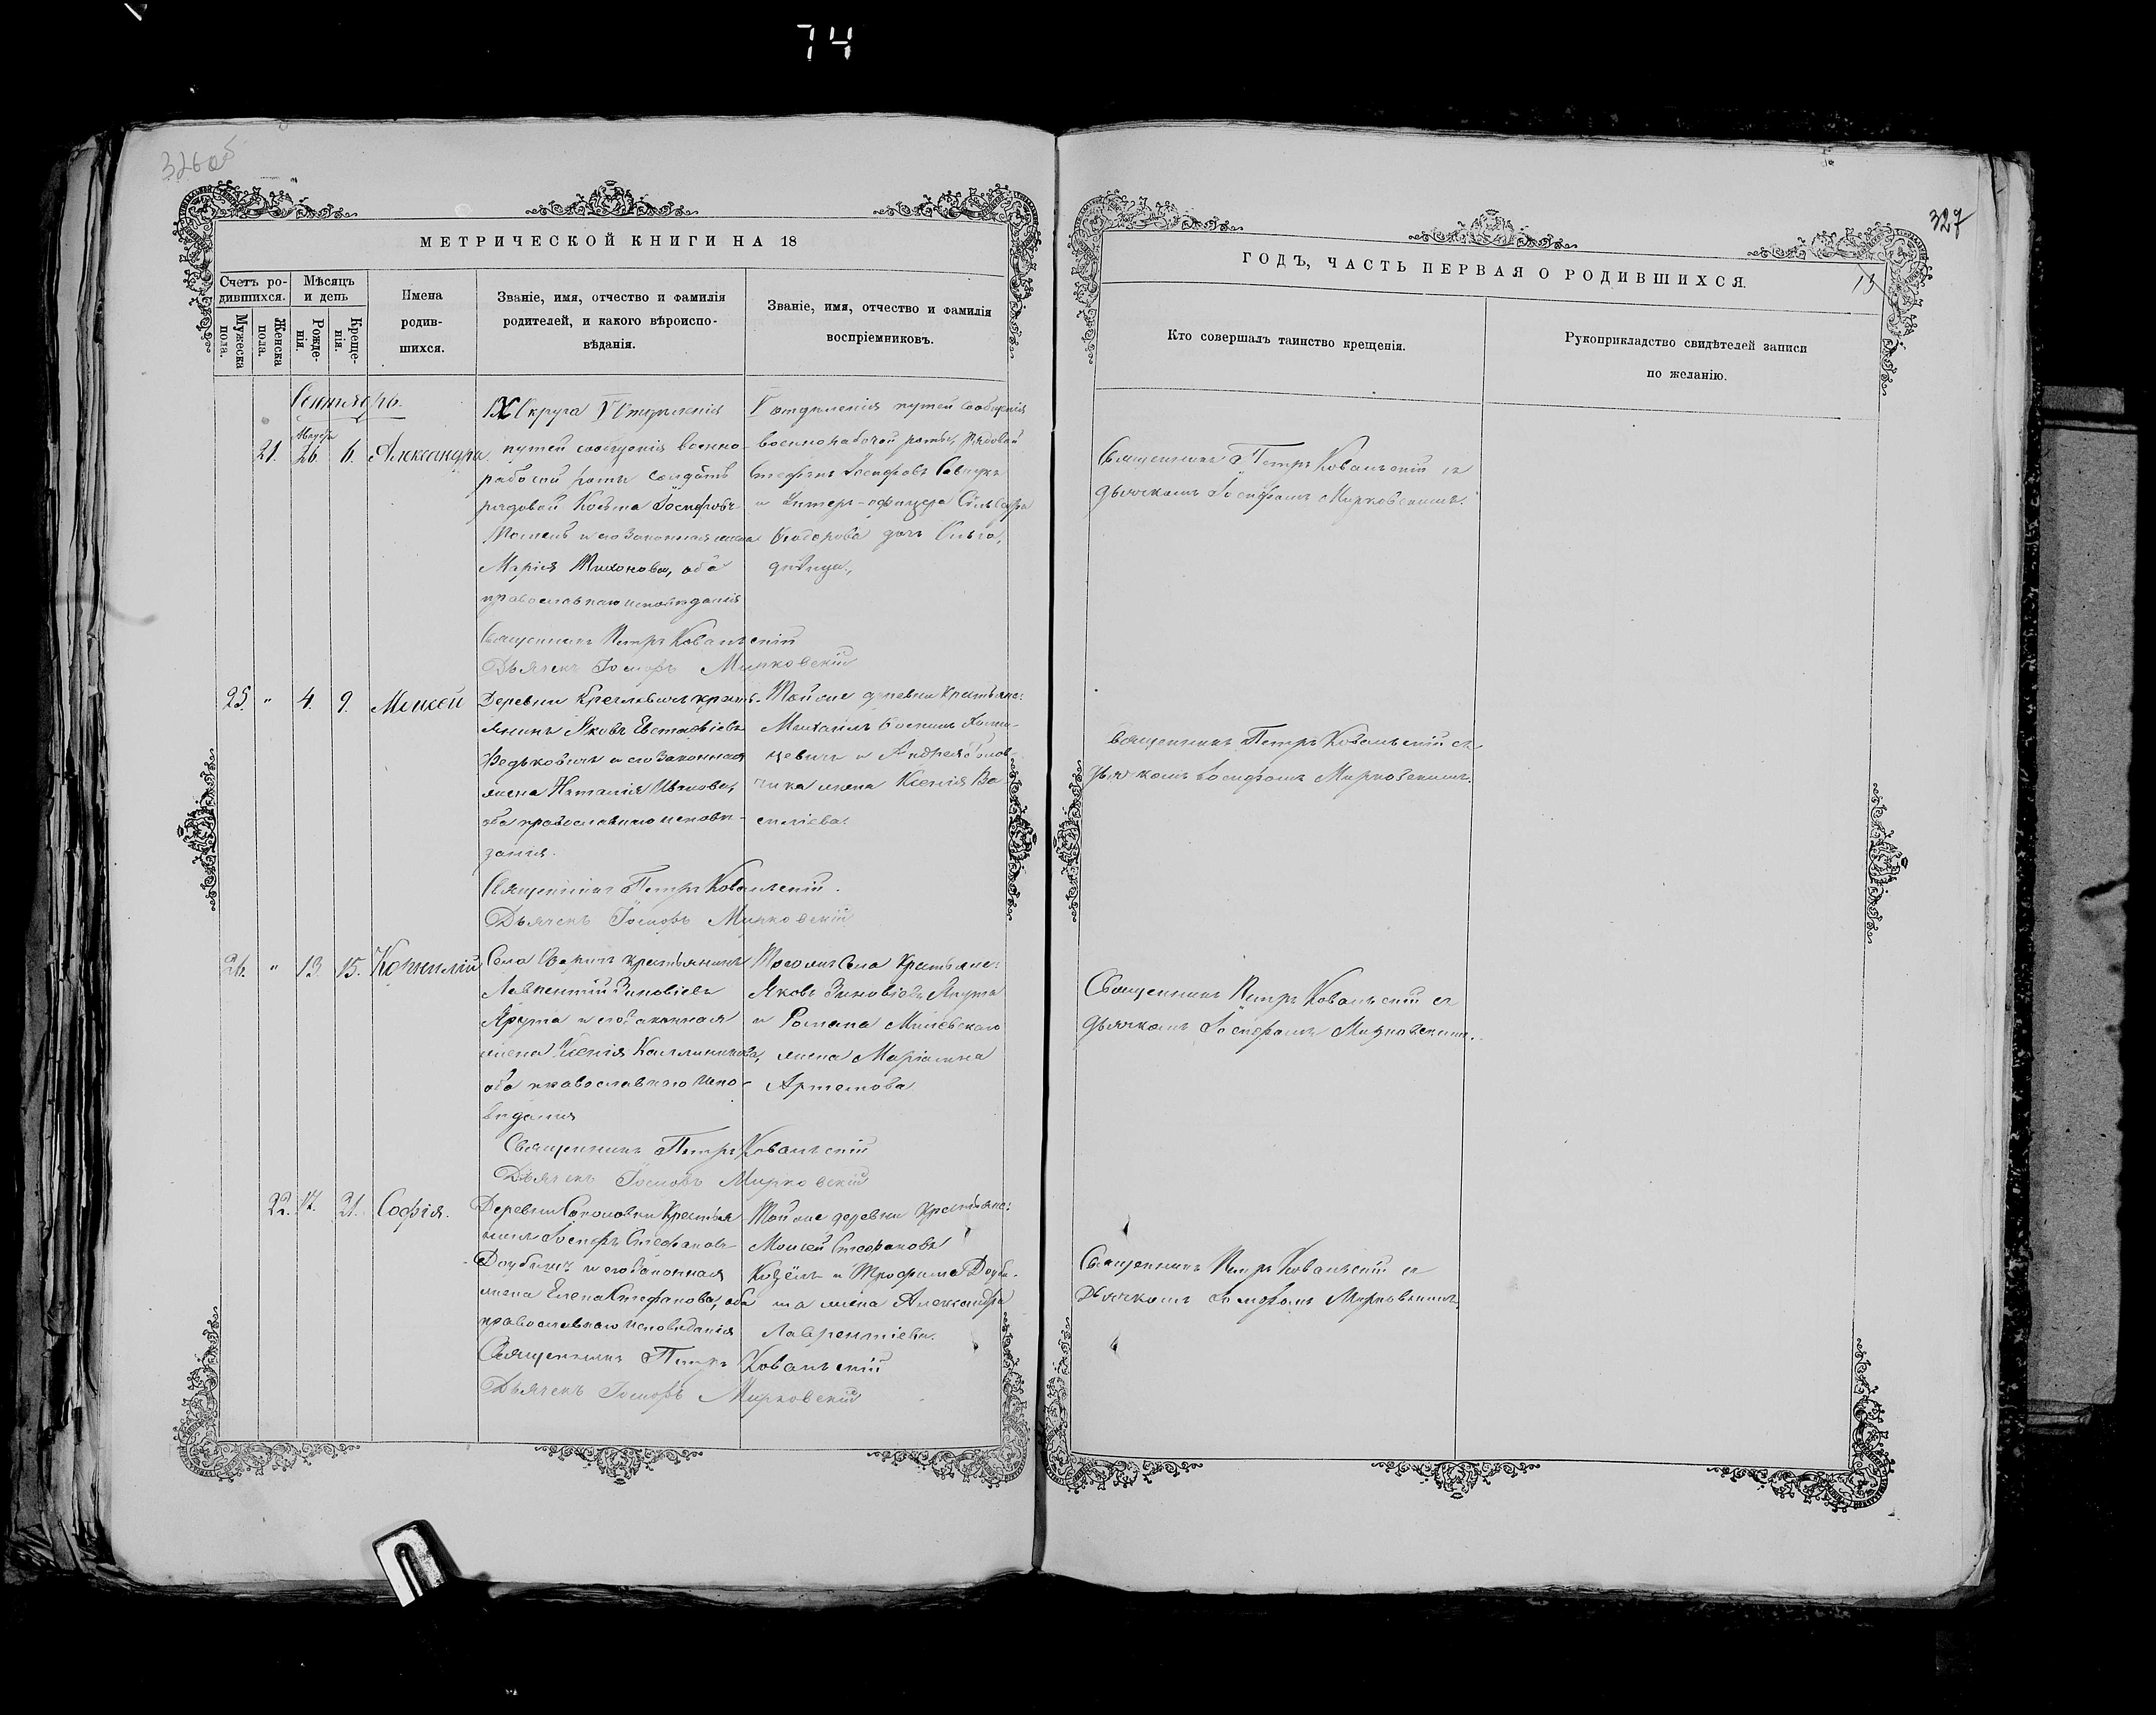 74
326об
МЕТРИЧЕСКОЙ КНИГИ НА 18
Счетъ ро-
дившихся.
Мѣсяцъ
и день
Мужеска
пола.
Женска
пола.
Рожде-
нія.
Креще-
нія.
Имена
родив-
шихся.
Званіе, имя, отчество и фамилія
родителей, и какого вѣроиспо-
вѣданія.
Званіе, имя, отчество и фамилія
воспріемниковъ.
Сентябрь.
21. Августа 26. 6. Александра.
IX Округа V Отдѣленія
путей сообщенія военно-
рабочей роты
рядовой Косьма Іосифовъ
и его законная жена
Марія Тихонова, оба
православнаго исповѣданія
V отдѣленія путей сообщенія
военнорабочей роты, Рядовой
Стефанъ Іосифовъ Савчукъ
и Унтеръ-офицера
Ѳеодорова дочь Ольга,
дѣвица.
Священникъ Петръ Ковальскій
Дьячекъ Іосифъ Мирковскій
25. " 4. 9. Моисей
Деревни крестья-
янинъ Яковъ Евстафіевъ
Федьковичъ и его законная
жена Наталія
оба православнаго исповѣ-
данія.
Той же деревни крестьяне:
Михаилъ
и Андрея
жена Ксенія Ва-
силіева.
Священникъ Петръ Ковальскій.
Дьячекъ Іосифъ Мирковскій
26. " 13. 15. Корнилій
Села крестьянинъ
Лаврентій Зиновіевъ
и его законная
жена Ксенія Каллиникова,
оба православнаго испо-
вѣданія
Того же Села Крестьяне:
Яковъ Зиновіевъ
и Романа
жена Маріанна
Артемова.
Священникъ Петръ Ковальскій
Дьячекъ Іосифъ Мирковскій
22. 17. 21. Софія.
Деревни Соколовки Крестья-
нинъ Іосифъ Стефановъ
и его законная
жена Елена Стефанова, оба
православнаго исповѣданія
Той же деревни Крестьяне:
Моисей Стефановъ
и Трофима
жена Александра
Лаврентіева.
Священникъ Петръ Ковальскій
Дьячекъ Іосифъ Мирковскій
327
13
ГОДЪ, ЧАСТЬ ПЕРВАЯ О РОДИВШИХСЯ.
Кто совершалъ таинство крещенія.
Рукоприкладство свидѣтелей записи
по желанію.
Священникъ Петръ Ковальскій съ
дьячкомъ Іосифомъ Мирковскимъ.
Священникъ Петръ Ковальскій съ
дьячкомъ Іосифомъ Мирковскимъ.
Священникъ Петръ Ковальскій съ
дьячкомъ Іосифомъ Мирковскимъ.
Священникъ Петръ Ковальскій съ
дьячкомъ Іосифомъ Мирковскимъ.